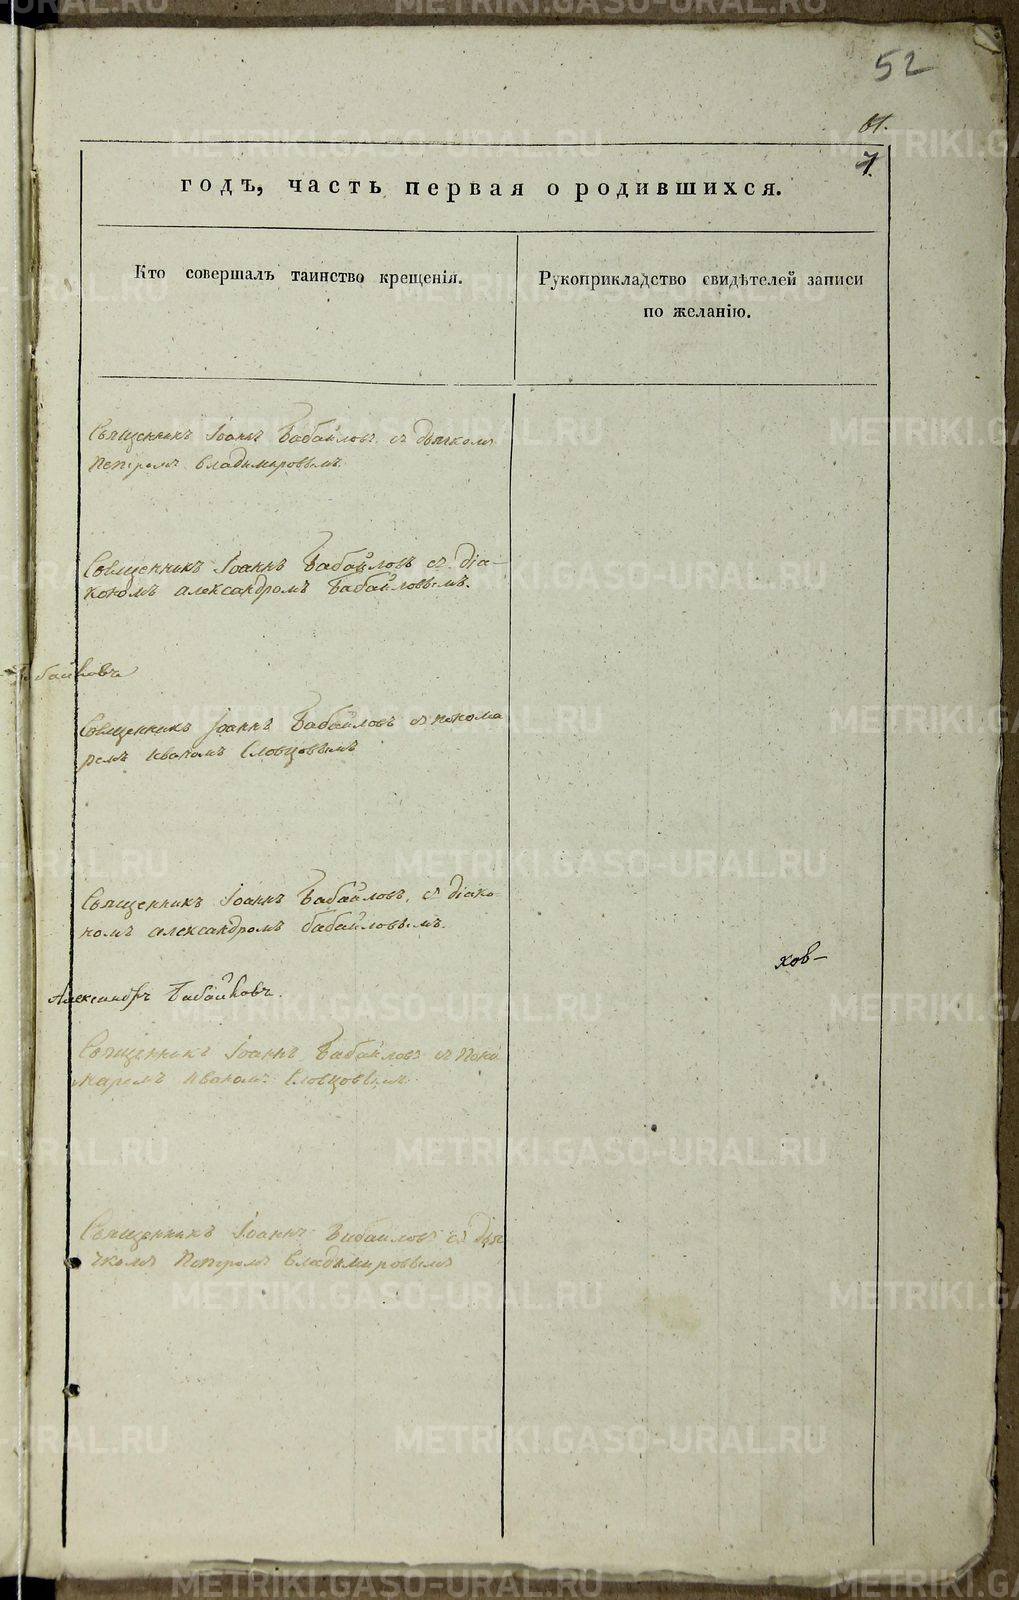 52
61.
7.
годъ, часть первая о родившихся.
Кто совершалъ таинство крещенія.
Рукоприкладство свидѣтелей записи
по желанію.
Священникъ Іоаннъ Бабайловъ съ дьячкомъ
Петромъ Владимировымъ.
Священникъ Іоаннъ Бабайловъ съ діа-
кономъ Александромъ Бабайловымъ.
Священникъ Іоаннъ Бабайловъ съ понома
ремъ Иваномъ Словцовымъ
Священникъ Іоаннъ Бабайловъ, съ діако-
номъ Александромъ Бабайловымъ.
ков-
Александръ
Священникъ Іоаннъ Бабайловъ съ поно
маремъ Иваномъ Словцовымъ.
Священникъ Іоаннъ Бабайловъ съ дья
чкомъ Петромъ Владимировымъ
METRIKI.GASO-URAL.RU